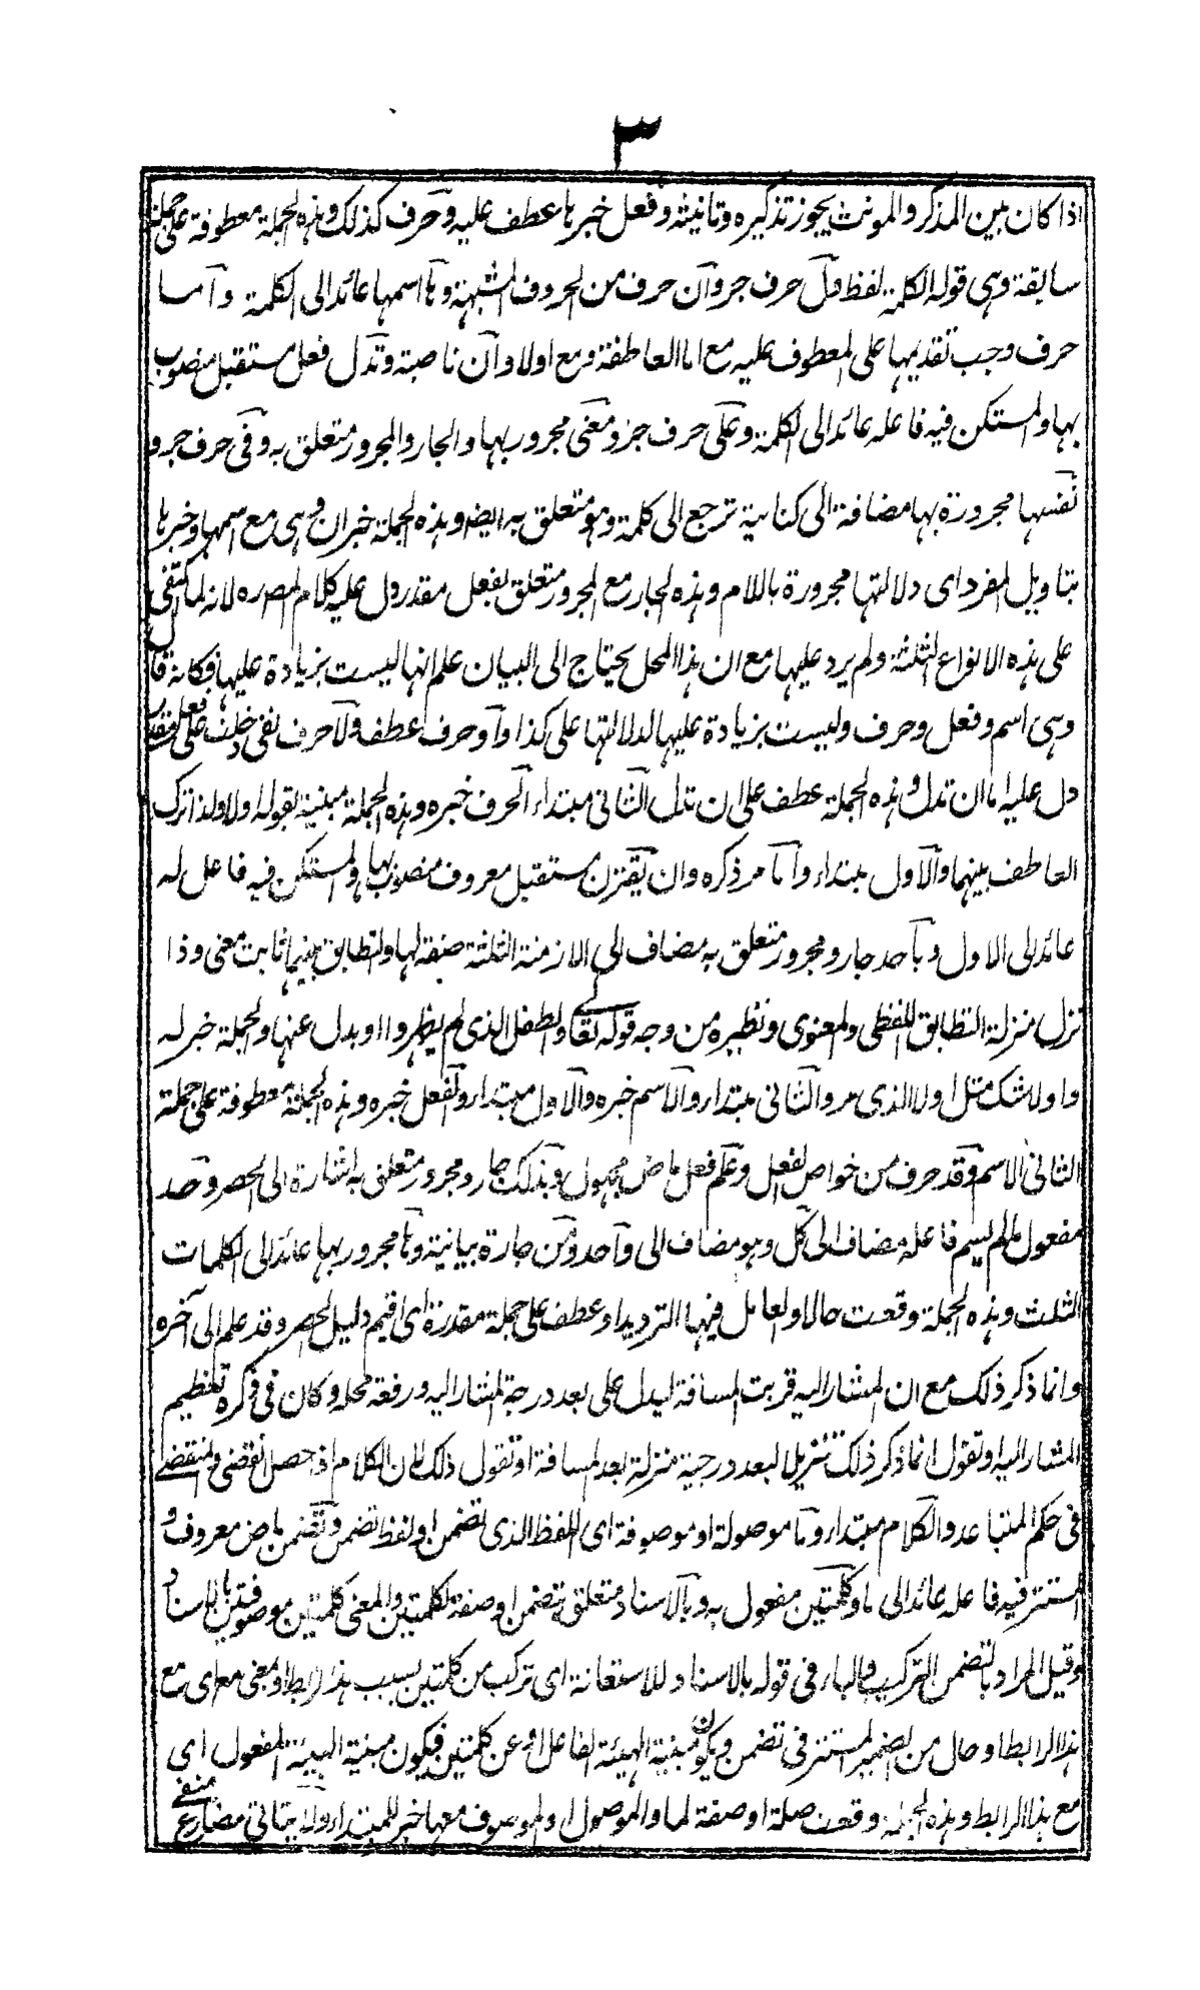 ٣
اذا كان بين المذكر والمونث يجوز تذكيره وتانيثه وفعل خبرها عطف عليه وحرف كذلك وهذه الجملة معطوفة على جملة
سابقة وهى قوله الكلمة لفظ ول حرف جر وان حرف من الحروف المشبهة وها اسمها عائد الى الكلمة واما
حرف وجب تقديمها على المعطوف عليه مع اما العاطفة ومع او لا وان ناصبة وتدل فعل مستقبل منصوب
بها والمستكن فيه فاعله عائد الى الكلمة وعلى حرف جر ومعنى مجرور بها والجار والمجرور متعلق به وفى حرف جر و
نفسها مجرورة بها مضافة الى كناية ترجع الى كلمة وهو متعلق به ايضا وهذه الجملة خبر ان وهى مع اسمها وخبرها
بتاويل المفرد اى دلالتها مجرورة باللام وهذه الجار مع المجرور متعلق بفعل مقدر دل عليه كلام المصره لانه لما اكتفى
على هذه الانواع الثلثة ولم يرد عليها مع ان هذا المحل يحتاج الى البيان علم انها ليست بزيادة عليها فكانه قال
وهى اسم وفعل وحرف وليست بزيادة عليها لدلالتها على كذا واو حرف عطف ولا حرف نفى دخلت على فعل مقدر
دل عليه اما ان تدل وهذه الجملة عطف على ان تدل الثانى مبتداء الحرف خبره وهذه الجملة مبنية بقوله او لا ولذا ترك
العاطف بينهما والاول مبتداء واما مر ذكره وان يقترن مستقبل معروف منصوب بها والمستكن فيه فاعل له
عائد الى الاول وباحد جار ومجرور متعلق به مضاف الى الازمنة الثلثة صفة لها والتطابق بينهما ثابت معنى وذا
نزل منزلة التطابق اللفظى والمعنوى ونظيره من وجه قوله تعالى والطفل الذى لم يظهروا او بدل عنها والجملة خبر له
واو لا شك مثل او لا الذى مر والثانى مبتداء والاسم خبره والاول مبتداء والفعل خبره وهذه الجملة معطوفة على جملة
الثانى الاسم وقد حرف من خواص الفعل وعلم فعل ماض مجهول وبذلك جار ومجرور متعلق به اشارة الى الحصر وحد
مفعول مالم يسم فاعله مضاف الى كل وهو مضاف الى واحد ومن جارة بيانية وها مجرور بها عائد الى الكلمات
الثلث وهذه الجملة وقعت حالا والعامل فيها الترديد او عطف على جملة مقدرة اى اقيم دليل الحصر وقد علم الى آخره
وانما ذكر ذلك مع ان المشار اليه قربت المسافة ليدل على بعد درجة المشار اليه ورفعة محله وكان فى ذكره تعظيم
المشار اليه او تقول انما ذكر ذلك تنزيلا لبعد درجة منزلة بعد المسافة او تقول ذلك لان الكلام اذا حصل نقضى والمنقضے
فى حكم المتباعد والكلام مبتداء وما موصولة او موصوفة اى اللفظ الذى تضمن او لفظ تضمن وتضمن ماض معروف و
المستتر فيه فاعله عائد الى ما وكلمتين مفعول به وبالاسناد متعلق بتضمن او صفة لكلمتين والمعنى كلمتين موصوفتين بالاسناد
وقيل المراد بالتضمن التركيب والباء فى قوله بالاسناد للاستعانة اى تركب من كلمتين بسبب هذا الرابط او بمعنى مع اى مع
هذا الرابط او حال من الضمير المستتر فى تضمن ويكون مبنية الهيئة الفاعل او عن كلمتين فيكون مبنية الهيئة المفعول اى
مع هذا الرابط وهذه الجملة وقعت صلة او صفة لما والموصول او الموصوف معها خبر للمبتداء ولا يتاتى مضارع منفے